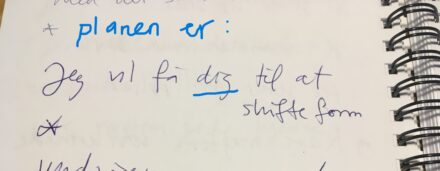 * planen er:
Jeg vil få dig til at
skifte form